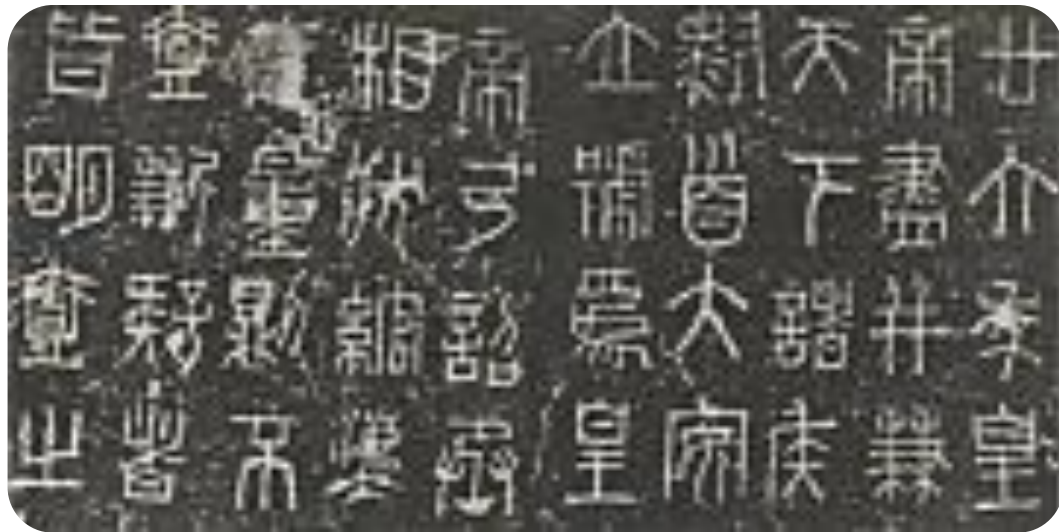 廿六年皇
帝盡并兼
天下諸侯
黔首大安
立號為皇
帝乃詔丞
相狀綰灋
度量則不
壹歉疑者
皆明壹之